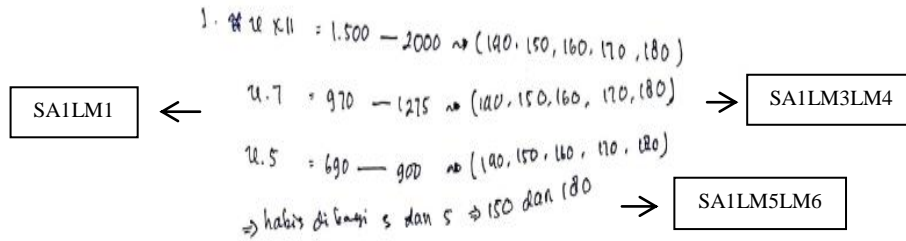 1. U x 11 = 1.500 — 2000 ⇝ (140, 150, 160, 170, 180)
SA1LM1 ← U.7 = 970 — 1275 ⇝ (140, 150, 160, 170, 180) → SA1LM3LM4
U.5 = 690 — 900 ⇝ (140, 150, 160, 170, 180)
⇒ habis dibagi 3 dan 5 ⇒ 150 dan 180 → SA1LM5LM6